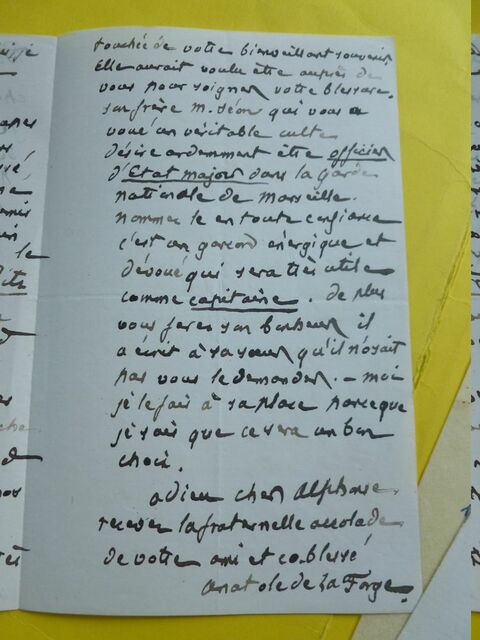 touchée de votre bienveillant souvenir
Elle aurait voulu être auprès de
vous pour soigner votre blessure.
son frère M. Léon qui vous a
voué un véritable culte
désire ardemment être officier
d'Etat major dans la garde
nationale de Marseille.
nommez le en toute confiance
c'est un garcond énergique et
dévoué qui sera très utile
comme capitaine. de plus
vous ferez son bonheur il
a écrit à sa sœur qu'il n'osait
pas vous le demander. - moi
je le fais à sa place parceque
je sais que ce sera un bon
choix.
adieu cher Alphonse.
recevez la fraternelle accolade
de votre ami et coblessé
anatole de La Forge.